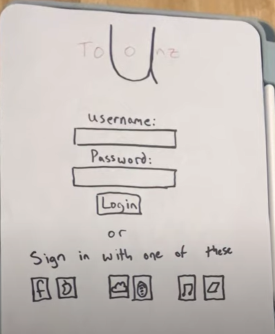 To U nz
Username:
Password:
Login
or
Sign in with one of these
f